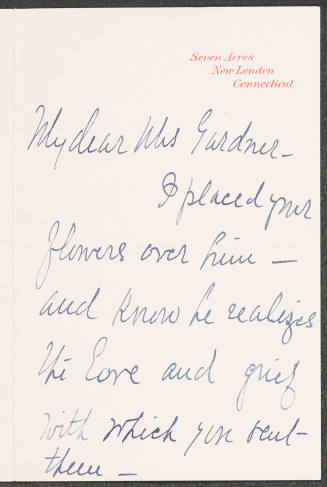 Seven Acres
New London
Connecticut
My dear Mrs Gardner—
I placed your
flowers over him —
and know he realizes
the love and grief
with which you sent
them —